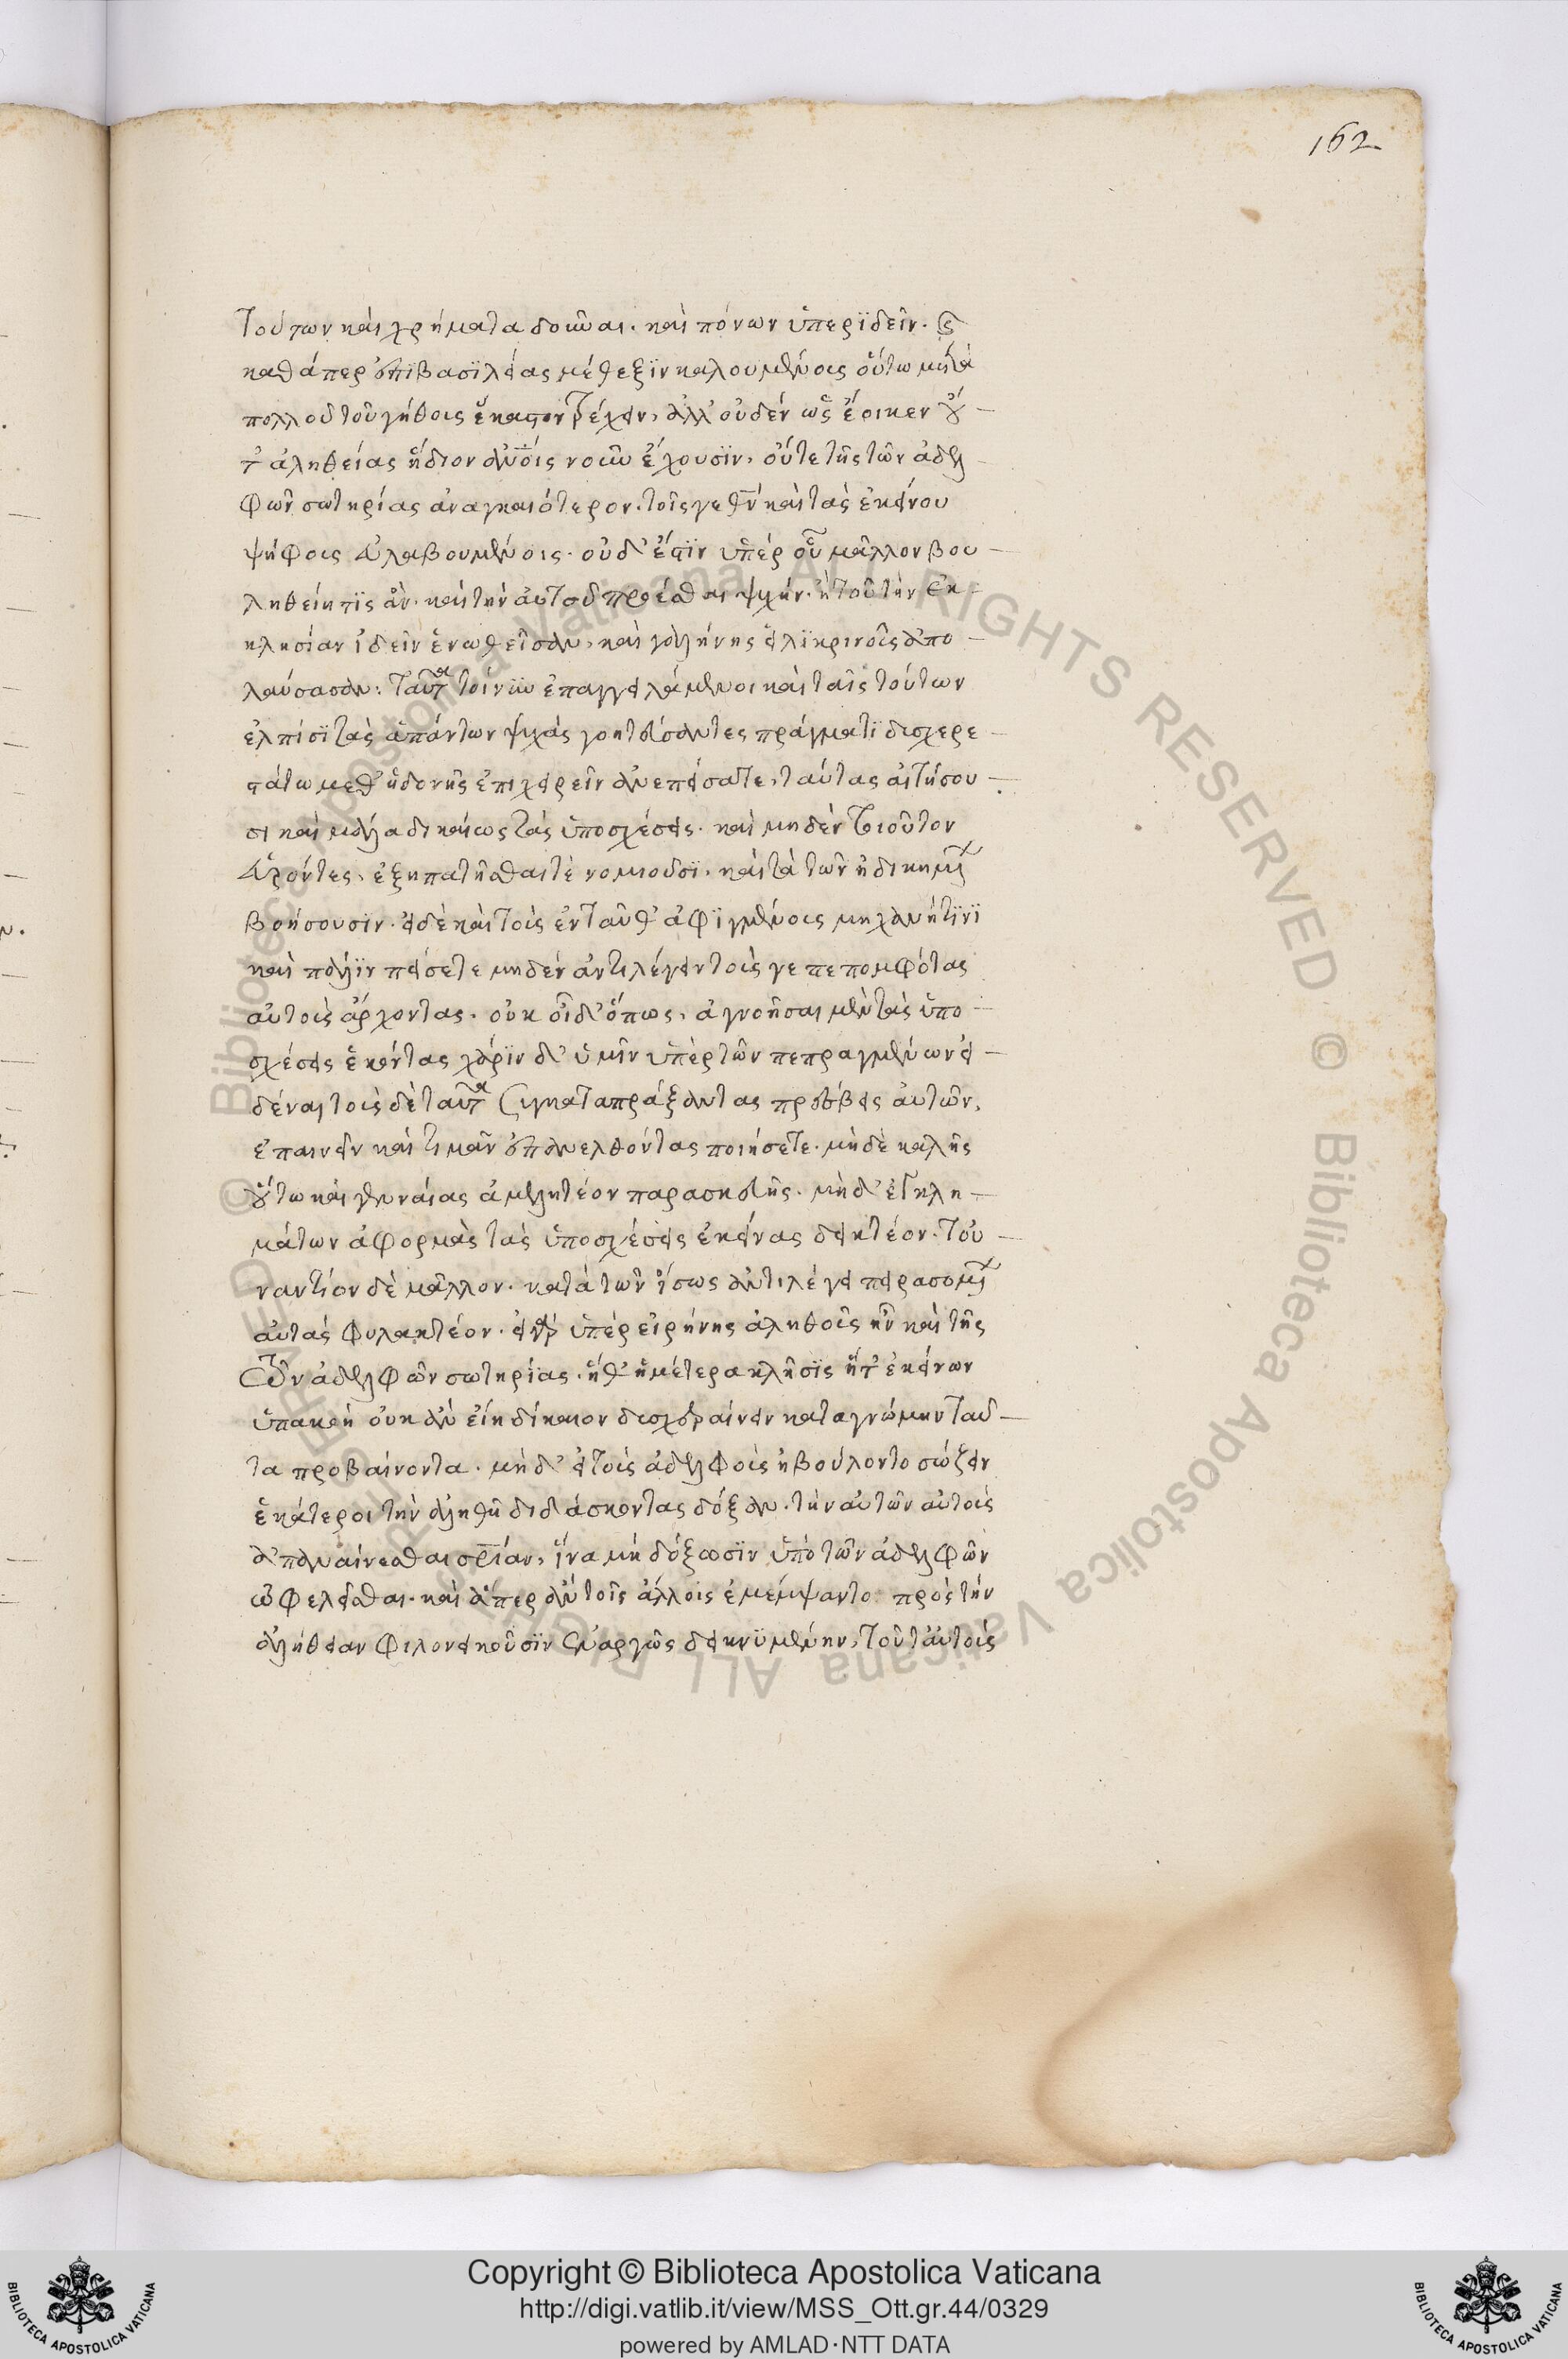 162
τούτων καὶ χρήματα δοῦναι. καὶ πόνων ὑπεριδεῖν. καὶ
καθάπερ ἐπὶ βασϊλείας μέθεξϊν καλουμένοις οὕτω μετὰ
πολλοῦ τοῦ γήθοις ἕκαστον τρέχειν, ἀλλ' οὐδέν ὡς ἔοικεν οὔ
τε ἀληθείας ἥδιον ἀνθρώποις νοῦν ἔχουσϊν, οὔτε τῆς τῶν ἀδελ
φῶν σωτηρίας ἀναγκαιότερον. τοῖς γε θεὸν καὶ τὰς ἐκείνου
ψήφοις εὐλαβουμένοις. οὐδ' ἔστϊν ὑπὲρ οὗ μᾶλλον βου
ληθείη τὶς ἂν. καὶ τὴν αὐτοῦ προέσθαι ψυχήν. ἢ τοῦ τὴν ἐκ
κλησίαν ἰδεῖν ἑνωθεῖσαν, καὶ γαλήνης εἰλϊκρινοῖς ἀπο
λαύσασαν. ταῦτα τοίνυν ἐπαγγειλάμενοι καὶ ταῖς τούτων
ἐλπίσϊ τὰς ἁπάντων ψυχὰς γοητεύσαντες πράγματϊ δυσχερε
στάτω μεθ' ἡδονῆς ἐπιχειρεῖν ἀνεπείσατε, ταύτας αἰτήσου
σι καὶ μάλα δικαίως τὰς ὑποσχέσεις. καὶ μηδὲν τοιοῦτον
εὑρόντες, ἐξηπατῆσθαι τὲ νομιοῦσϊ. καὶ τὰ τῶν ἠδικημένων
βοήσουσϊν. εἰ δὲ καὶ τοὶς ἐνταῦθ' ἀφϊγμένοις μηχανῆ τϊνϊ
καὶ πάλϊν πείσετε μηδὲν ἀντιλέγειν τοὶς γε πεπομφότας
αὐτοὶς ἄρχοντας. οὐκ οἶδ' ὅπως, ἀγνοῆσαι μὲν τὰς ὑπο
σχέσεις ἑκόντας χάρϊν δ' ὑμῖν ὑπὲρ τῶν πεπραγμένων εἰ
δέναι τοὶς δὲ ταῦτα συγκαταπράξαντας πρέσβεις αὐτῶν,
ἐπαινεῖν καὶ τιμᾶν ἐπανελθόντας ποιήσετε. μὴ δὲ καλῆς
οὕτω καὶ γενναίας ἀμελητέον παρασκευῆς. μὴ δ' ἐγκλη
μάτων ἀφορμὰς τὰς ὑποσχέσεις ἐκείνας δεικτέον. τοὐ
ναντίον δὲ μᾶλλον. κατὰ τῶν ἴσως ἀντιλέγει πειρασομένων
αὐτὰς φυλακτέον. εἰ γὰρ ὑπὲρ εἰρήνης ἀληθοῖς ἦν καὶ τῆς
τῶν ἀδελφῶν σωτηρίας. ἥθ' ἡμετέρα κλῆσϊς ἥτ' ἐκείνων
ὑπακοὴ οὐκ ἂν εἴη δίκαιον δυσχεραίνειν κατὰ γνώμην ταῦ
τα προβαίνοντα. μὴ δ' εἰ τοὶς ἀδελφοὶς ἠβούλοντο σώζειν
ἑκάτεροι τὴν ἀληθῆ διδάσκοντας δόξαν. τὴν αὐτῶν αὐτοὶς
ἀπαναίνεσθαι σωτηρίαν, ἵνα μὴ δόξωσϊν ὑπὸ τῶν ἀδελφῶν
ὠφελεῖσθαι. καὶ ἅπερ ἂν τοῖς ἄλλοις ἐμέμψαντο πρὸς τὴν
ἀλήθειαν φιλονεικοῦσϊν ἐναργῶς δεικνϋμένην, τοῦτ' αὐτοὶς
Copyright © Biblioteca Apostolica Vaticana
http://digi.vatlib.it/view/MSS_Ott.gr.44/0329
powered by AMLAD·NTT DATA